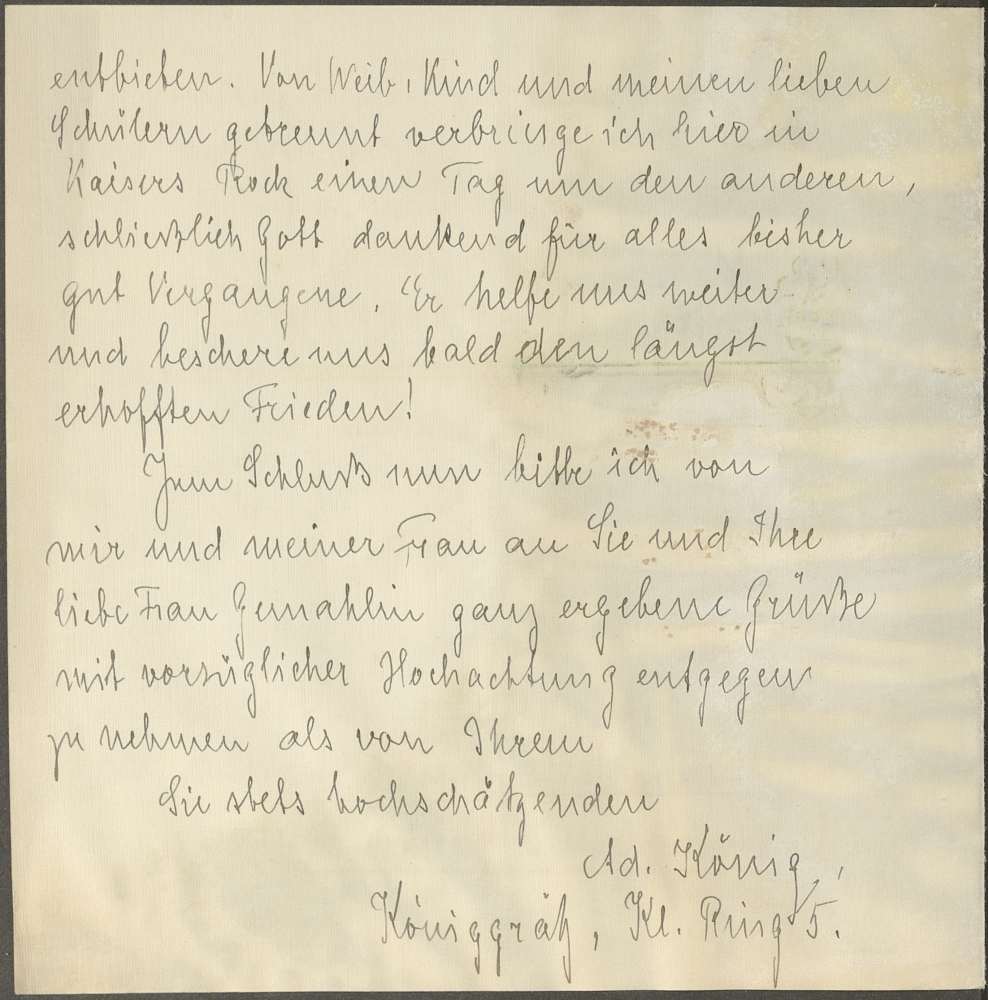 entbieten. Von Weib, Kind und meinen lieben
Schülern getrennt verbringe ich hier in
Kaisers Rock einen Tag um den anderen,
schließlich Gott dankend für alles bisher
gut Vergangene. Er helfe uns weiter
und beschere uns bald den längst
erhofften Frieden!
Zum Schluß nun bitte ich von
mir und meiner Frau an Sie und Ihre
liebe Frau Gemahlin ganz ergebene Grüße
mit vorzüglicher Hochachtung entgegen
zu nehmen als von Ihrem
Sie stets hochschätzenden
Ad. König,
Königgrätz, Kl. Ring 5.